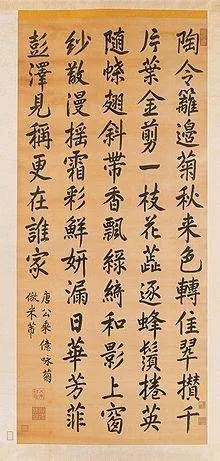 陶令籬邊菊秋来色轉佳翠攢千
片葉金剪一枝花蕋逐蜂鬚捲英
随蝶翅斜帶香飄綠綺和影上窗
紗散漫摇霜彩鮮妍漏日華芳菲
彭澤見稱更在誰家
唐公乘億咏菊
倣米芾